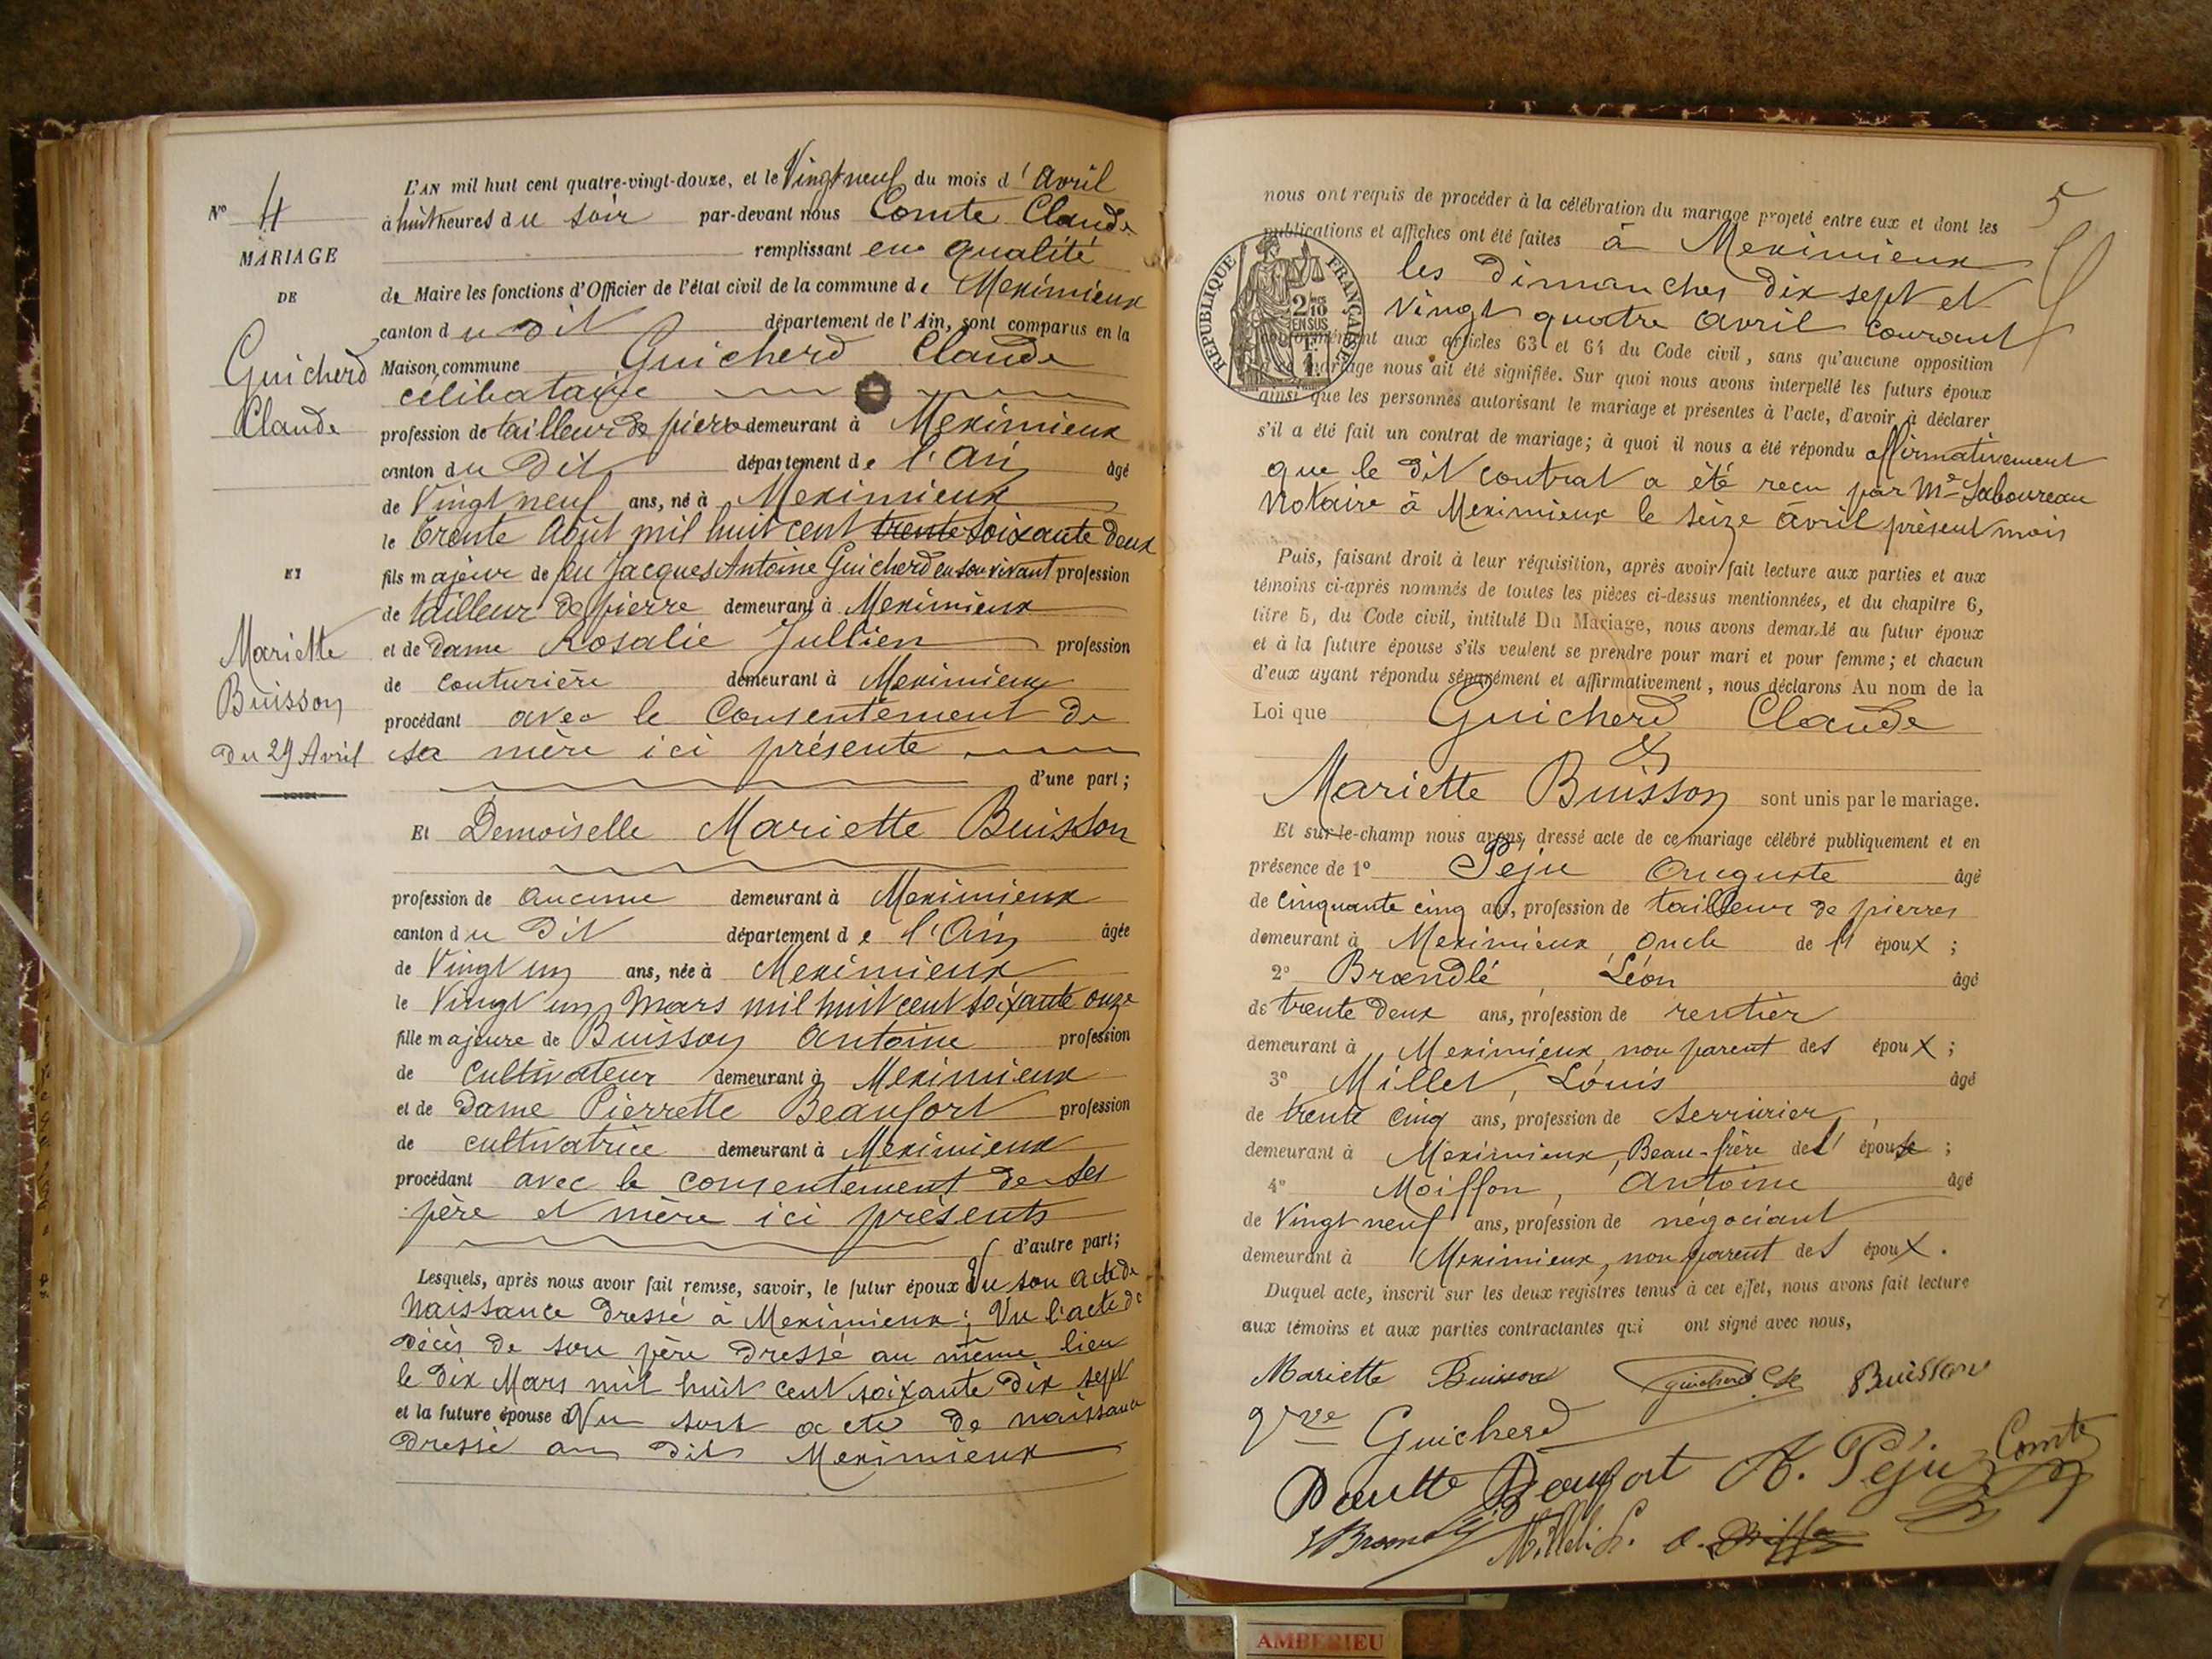 L'AN mil huit cent quatre-vingt-douze, et le Vingt neuf du mois d'Avril
à huit heures du soir par-devant nous Comte Claude
remplissant en qualité
de Maire les fonctions d'Officier de l'état civil de la commune de Meximieux
canton du dit département de l'Ain, sont comparus en la
Maison commune Guicherd Claude
célibataire
profession de tailleur de pierre demeurant à Meximieux
canton du Dit département de l'Ain âgé
de Vingt neuf ans, né à Meximieux
le trente Août mil huit cent trente soixante deux
fils majeur de feu Jacques Antoine Guicherd en son vivant profession
de tailleur de pierre demeurant à Meximieux
et de Dame Rosalie Jullien profession
de couturière demeurant à Meximieux
procédant avec le consentement de
sa mère ici présente
d'une part;
Et Demoiselle Mariette Buisson
profession de aucune demeurant à Meximieux
canton du Dit département de l'Ain âgée
de Vingt un ans, née à Meximieux
le Vingt un Mars mil huit cent soixante onze
fille majeure de Buisson Antoine profession
de cultivateur demeurant à Meximieux
et de Dame Pierrette Beaufort profession
de cultivatrice demeurant à Meximieux
procédant avec le consentement de ses
père et mère ici présents
d'autre part;
Lesquels, après nous avoir fait remise, savoir, le futur époux Vu son acte de
naissance dressé à Meximieux; Vu l'acte de
décès de son père dressé au même lieu
le dix Mars mil huit cent soixante dix sept
et la future épouse d Vu son acte de naissance
dressé au dit Meximieux
N° 4
MARIAGE
DE
Guicherd
Claude
ET
Mariette
Buisson
Du 29 Avril
5
nous ont requis de procéder à la célébration du mariage projeté entre eux et dont les
publications et affiches ont été faites à Meximieux
les dimanches dix sept et
vingt quatre avril courant
conformément aux articles 63 et 64 du Code civil, sans qu'aucune opposition
mariage nous ait été signifiée. Sur quoi nous avons interpellé les futurs époux
ainsi que les personnes autorisant le mariage et présentes à l'acte, d'avoir à déclarer
s'il a été fait un contrat de mariage; à quoi il nous a été répondu affirmativement
que le dit contrat a été reçu par Me Laboureau
Notaire à Meximieux le seize avril présent mois
RÉPUBLIQUE FRANÇAISE
2/10 EN SUS
Puis, faisant droit à leur réquisition, après avoir fait lecture aux parties et aux
témoins ci-après nommés de toutes les pièces ci-dessus mentionnées, et du chapitre 6,
titre 5, du Code civil, intitulé Du Mariage, nous avons demandé au futur époux
et à la future épouse s'ils veulent se prendre pour mari et pour femme; et chacun
d'eux ayant répondu séparément et affirmativement, nous déclarons Au nom de la
Loi que Guicherd Claude
&
Mariette Buisson sont unis par le mariage.
Et sur-le-champ nous avons dressé acte de ce mariage célébré publiquement et en
présence de 1° Peju Auguste âgé
de cinquante cinq ans, profession de tailleur de pierres
demeurant à Meximieux oncle de l' époux;
2° Brændlé, Léon âgé
de trente deux ans, profession de rentier
demeurant à Meximieux, non parent des époux;
3° Millet, Louis âgé
de trente cinq ans, profession de serrurier,
demeurant à Meximieux, Beau-frère de l' épouse;
4° Moiffon, Antoine âgé
de vingt neuf ans, profession de négociant
demeurant à Meximieux, non parent des époux.
Duquel acte, inscrit sur les deux registres tenus à cet effet, nous avons fait lecture
aux témoins et aux parties contractantes qui ont signé avec nous,
Mariette Buisson Guicherd Cde Buisson
Vve Guicherd
Beaufort A. Péju Comte
Millet L.
AMBERIEU